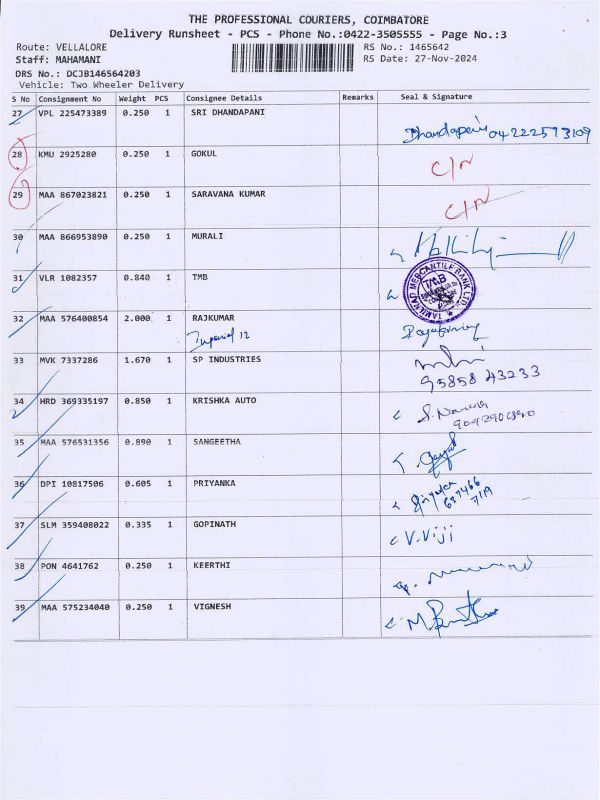 THE PROFESSIONAL COURIERS, COIMBATORE
Delivery Runsheet - PCS - Phone No.:0422-3505555 - Page No.:3
Route: VELLALORE RS No.: 1465642
Staff: MAHAMANI RS Date: 27-Nov-2024
DRS No.: DCJB146564203
Vehicle: Two Wheeler Delivery
S No Consignment No Weight PCS Consignee Details Remarks Seal & Signature
27 VPL 225473389 0.250 1 SRI DHANDAPANI
Dhandapani 04222573109
28 KMU 2925280 0.250 1 GOKUL C/N
29 MAA 867023821 0.250 1 SARAVANA KUMAR C/N
30 MAA 866953890 0.250 1 MURALI
31 VLR 1082357 0.840 1 TMB TAMILNAD MERCANTILE BANK LTD.
32 MAA 576400854 2.000 1 RAJKUMAR
33 MVK 7337286 1.670 1 SP INDUSTRIES
95858 43233
34 HRD 369335197 0.850 1 KRISHKA AUTO
35 MAA 576531356 0.890 1 SANGEETHA
36 DPI 10817506 0.605 1 PRIYANKA Priyanka
37 SLM 359408022 0.335 1 GOPINATH V.Viji
38 PON 4641762 0.250 1 KEERTHI
39 MAA 575234040 0.250 1 VIGNESH